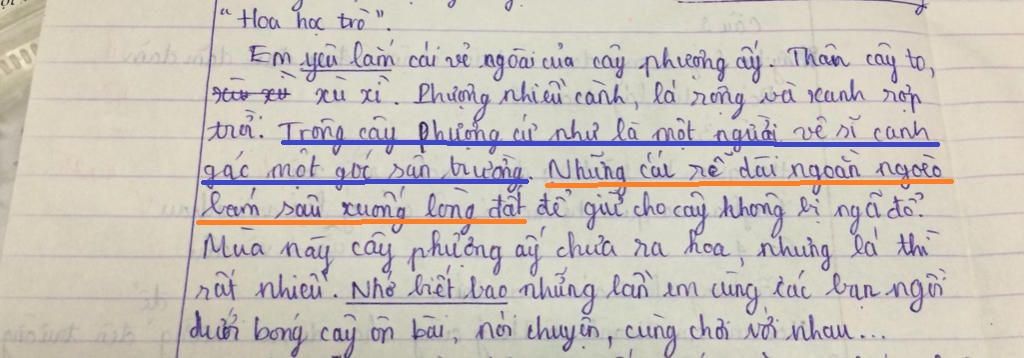 "Hoa học trò".
Em yêu lắm cái vẻ ngoài của cây phượng ấy. Thân cây to,
xù xì. Phượng nhiều cành, lá rộng và xanh rợp
trời. Trông cây phượng cứ như là một người vệ sĩ canh
gác một góc sân trường. Những cái rễ dài ngoằn ngoèo
bám sâu xuống lòng đất để giữ cho cây không bị ngã đổ.
Mùa này cây phượng ấy chưa ra hoa, nhưng lá thì
rất nhiều. Nhớ biết bao những lần em cùng các bạn ngồi
dưới bóng cây ôn bài, nói chuyện, cùng chơi với nhau...